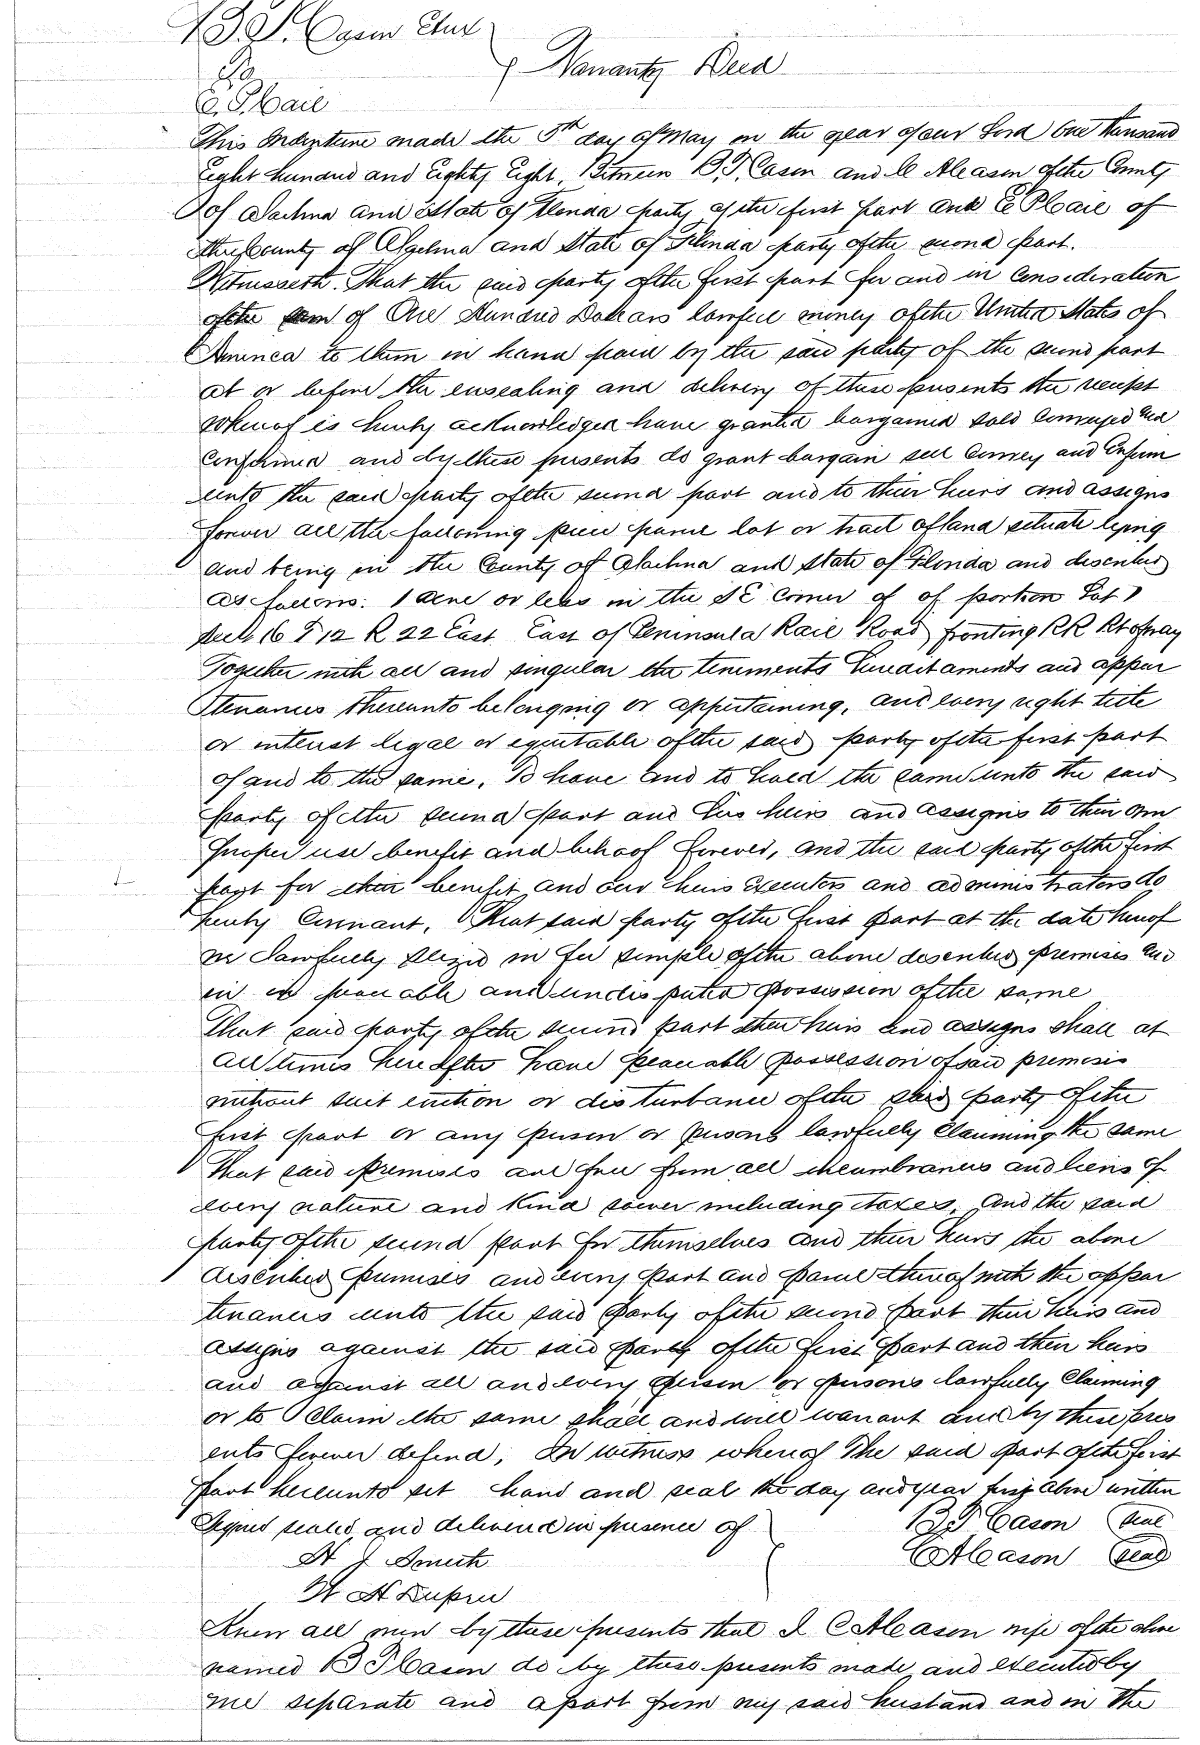 B. F. Cason Etux
To
Warranty Deed
E. P. Hail
This Indenture made the 5th day of May in the year of our Lord One thousand
Eight hundred and Eighty Eight, Between B. F. Cason and C A Cason of the County
of Alachua and State of Florida party of the first part and E P Hail of
the County of Alachua and State of Florida party of the second part.
Witnesseth. That the said party of the first part for and in consideration
of the sum of One Hundred Dollars lawful money of the United States of
America to them in hand paid by the said party of the second part
at or before the ensealing and delivery of these presents the receipt
whereof is hereby acknowledged have granted bargained sold conveyed and
confirmed and by these presents do grant bargain sell convey and confirm
unto the said party of the second part and to their heirs and assigns
forever all the following piece parcel lot or tract of land situate lying
and being in the County of Alachua and State of Florida and described
as follows: 1 acre or less in the SE corner of of portion Lot 1
Sec 16 T 12 R 22 East East of Peninsula Rail Road fronting RR Rt of way
Together with all and singular the tenements hereditaments and appur
tenances thereunto belonging or appertaining, and every right title
or interest legal or equitable of the said party of the first part
of and to the same, To have and to hold the same unto the said
party of the second part and his heirs and assigns to their own
proper use benefit and behoof forever, and the said party of the first
part for their benefit and our heirs executors and administrators do
hereby covenant, That said party of the first part at the date hereof
is lawfully seized in fee simple of the above described premises and
in peaceable and undisputed possession of the same
That said party of the second part their heirs and assigns shall at
all times hereafter have peaceable possession of said premises
without suit eviction or disturbance of the said party of the
first part or any person or persons lawfully claiming the same
That said premises are free from all incumbrances and liens of
every nature and kind soever including taxes, and the said
party of the second part for themselves and their heirs the above
described premises and every part and parcel thereof with the appur
tenances unto the said party of the second part their heirs and
assigns against the said party of the first part and their heirs
and against all and every person or persons lawfully claiming
or to claim the same shall and will warrant and by these pres
ents forever defend; In witness whereof The said part of the first
part hereunto set hand and seal the day and year first above written
Signed sealed and delivered in presence of
B F Cason Seal
H J Smith
C A Cason Seal
W H Dupree
Know all men by these presents that I C A Cason wife of the above
named B F Cason do by these presents made and executed by
me separate and apart from my said husband and in the